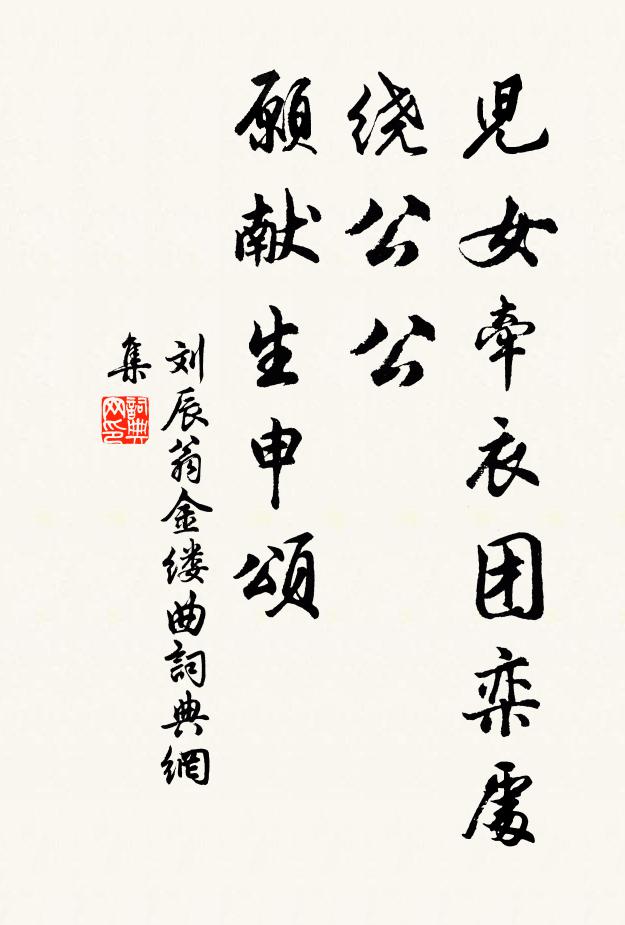 児女牵衣团栾處
绕公公
願献生申頌
刘辰翁金缕曲詞典網
集
詞典
网印